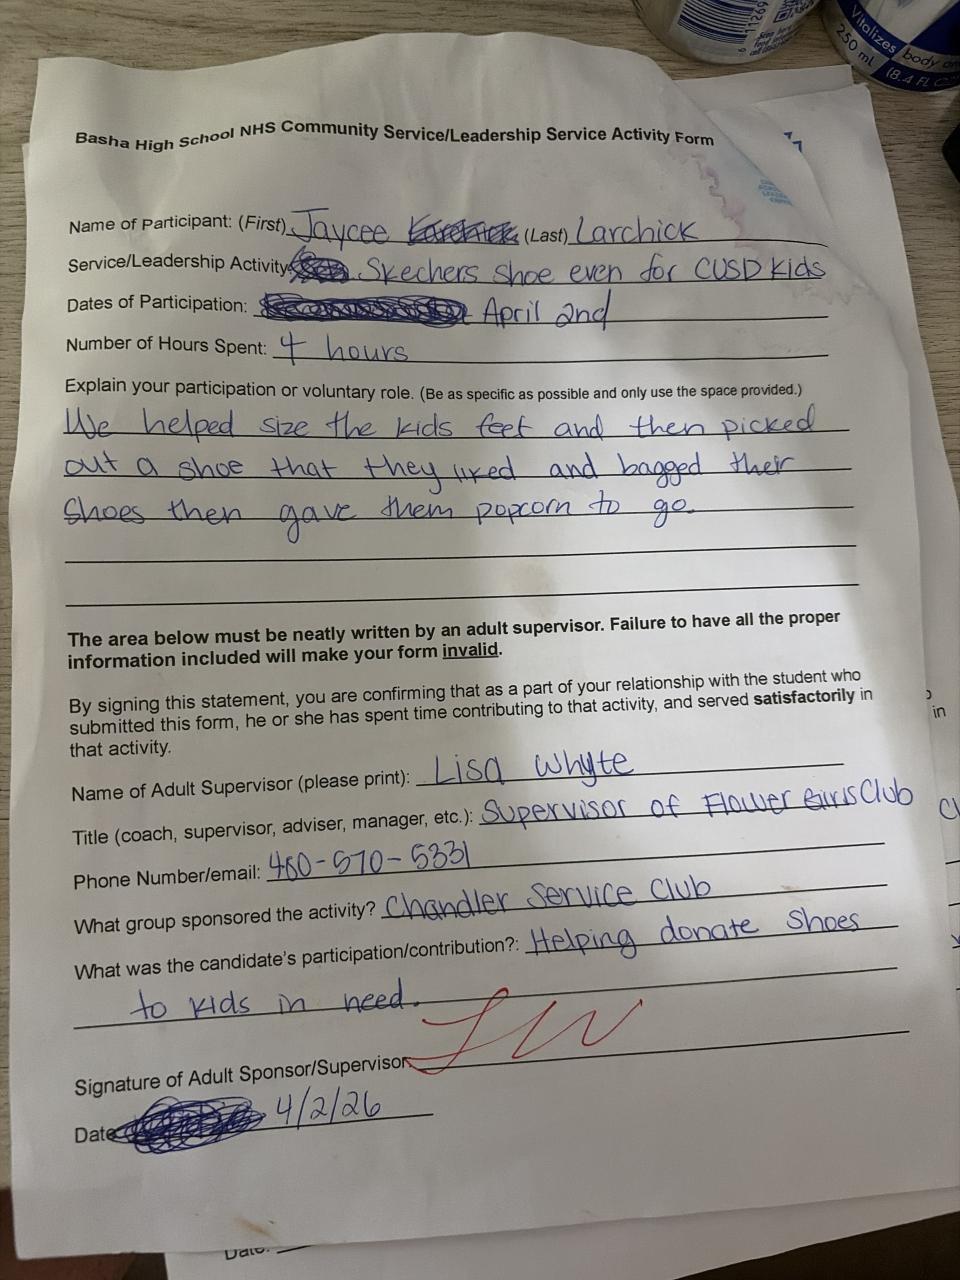 Vitalizes body
250 ml (8.4 FL
Basha High School NHS Community Service/Leadership Service Activity Form
Name of Participant: (First) Jaycee (Last) Larchick
Service/Leadership Activity Skechers shoe even for CUSD kids
Dates of Participation: April 2nd
Number of Hours Spent: 4 hours
Explain your participation or voluntary role. (Be as specific as possible and only use the space provided.)
We helped size the kids feet and then picked
out a shoe that they liked and bagged their
shoes then gave them popcorn to go.
The area below must be neatly written by an adult supervisor. Failure to have all the proper
information included will make your form invalid.
By signing this statement, you are confirming that as a part of your relationship with the student who
submitted this form, he or she has spent time contributing to that activity, and served satisfactorily in
that activity.
in
Name of Adult Supervisor (please print): Lisa Whyte
Title (coach, supervisor, adviser, manager, etc.): Supervisor of Flower Girls Club
Phone Number/email: 480-570-5331
What group sponsored the activity? Chandler Service Club
What was the candidate's participation/contribution?: Helping donate shoes
to kids in need.
Signature of Adult Sponsor/Supervisor LW
Date 4/2/26
Date: